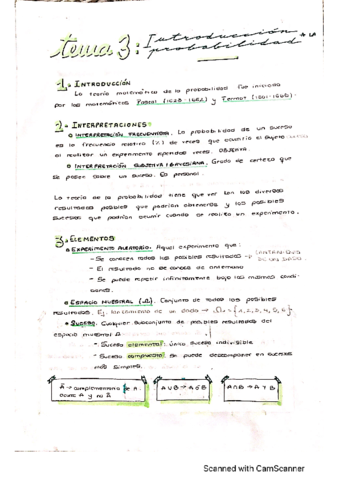 tema 3: Introducción a la
probabilidad
1. INTRODUCCIÓN
La teoría matemática de la probabilidad fue iniciada
por los matemáticos Pascal (1623-1662) y Fermat (1601-1665).
2. INTERPRETACIONES
INTERPRETACIÓN FRECUENTISTA. La probabilidad de un suceso
es la frecuencia relativa (%) de veces que ocurriría el suceso
al realizar un experimento repetidas veces. OBJETIVA.
INTERPRETACIÓN SUBJETIVA / BAYESIANA. Grado de certeza que
se posee sobre un suceso. Es personal.
La teoría de la probabilidad tiene que ver con los diversos
resultados posibles que podrían obtenerse y los posibles
sucesos que podrían ocurrir cuando se realiza un experimento.
3. ELEMENTOS
EXPERIMENTO ALEATORIO. Aquel experimento que:
- Se conocen todos los posibles resultados →
- El resultado no se conoce de antemano
- Se puede repetir infinitamente bajo las mismas condi-
ciones.
ESPACIO MUESTRAL (Ω). Conjunto de todos los posibles
resultados. Ej. lanzamiento de un dado → Ω = {1, 2, 3, 4, 5, 6}
SUCESO. Cualquier subconjunto de posibles resultados del
espacio muestral
- Suceso elemental: único suceso indivisible
- Suceso compuesto: se puede descomponer en sucesos
más simples.
Ā → complementario de A.
ocurre A y no Ā
A∪B → A ó B
A∩B → A y B
Scanned with CamScanner